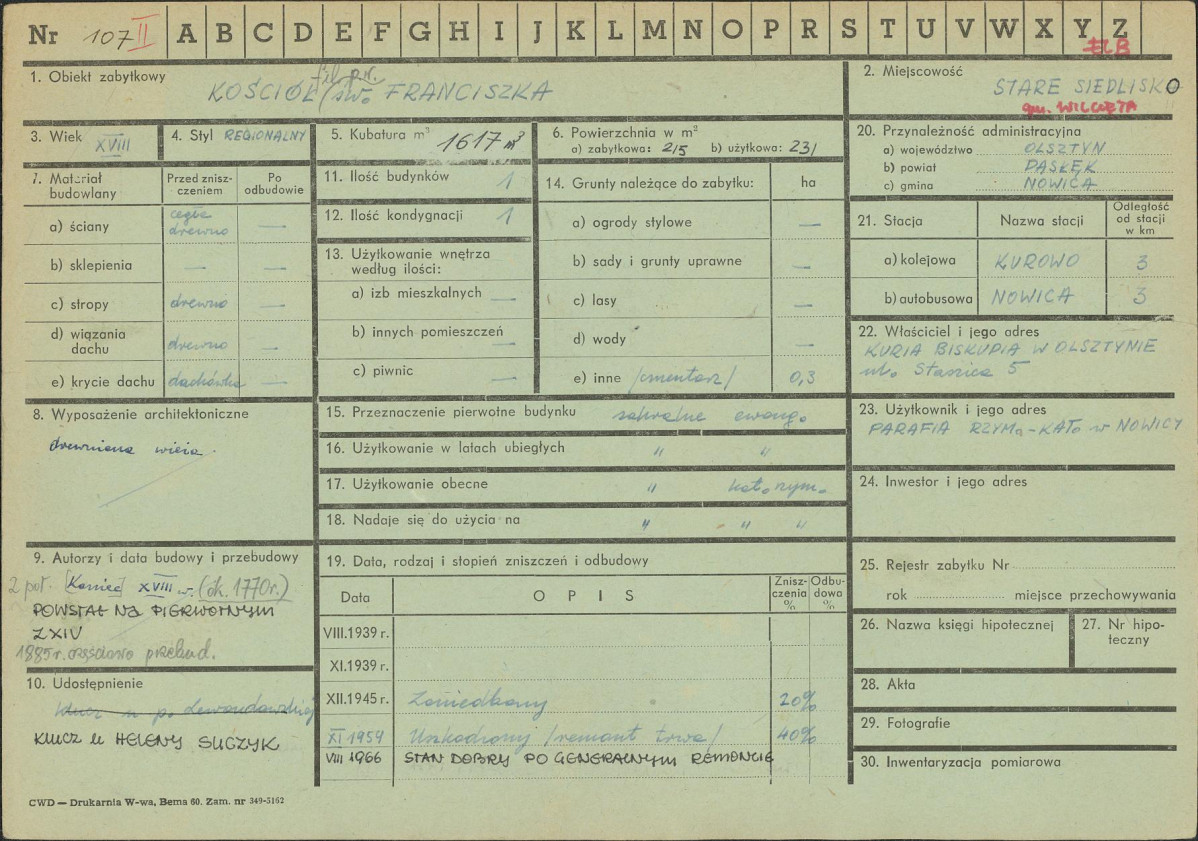 Nr 107 II A B C D E F G H I J K L M N O P R S T U V W X Y Z
ELB
1. Obiekt zabytkowy
fil. p.w.
KOŚCIÓŁ (św. FRANCISZKA
2. Miejscowość
STARE SIEDLISKO
gm. WILCZĘTA
3. Wiek XVIII
4. Styl REGIONALNY
5. Kubatura m³ 1617 m³
6. Powierzchnia w m²
a) zabytkowa: 215 b) użytkowa: 231
7. Materiał budowlany
Przed znisz-czeniem
Po odbudowie
a) ściany cegła drewno —
b) sklepienia — —
c) stropy drewno —
d) wiązania dachu drewno —
e) krycie dachu dachówka —
8. Wyposażenie architektoniczne
drewniana wieża.
9. Autorzy i data budowy i przebudowy
2 poł. [Koniec] XVIII w. (ok. 1770r.)
POWSTAŁ NA PIERWOTNYM
Z XIV
1885 r. częściowo przebud.
10. Udostępnienie
Klucz u p. Lewandowskiej
KLUCZ U HELENY SUCZYK
11. Ilość budynków 1
12. Ilość kondygnacji 1
13. Użytkowanie wnętrza
według ilości:
a) izb mieszkalnych —
b) innych pomieszczeń —
c) piwnic —
14. Grunty należące do zabytku: ha
a) ogrody stylowe —
b) sady i grunty uprawne —
c) lasy —
d) wody —
e) inne /cmentarz/ 0,3
15. Przeznaczenie pierwotne budynku sakralne ewang.
16. Użytkowanie w latach ubiegłych " "
17. Użytkowanie obecne " kat. rzym.
18. Nadaje się do użycia na " " "
19. Data, rodzaj i stopień zniszczeń i odbudowy
Data OPIS Znisz-czenia % Odbu-dowa %
VIII.1939 r.
XI.1939 r.
XII.1945 r. Zaniedbany 20%
XI 1959 Uszkodzony /remont trwa/ 40%
VIII 1966 STAN DOBRY PO GENERALNYM REMONCIE
20. Przynależność administracyjna
a) województwo OLSZTYN
b) powiat PASŁĘK
c) gmina NOWICA
21. Stacja Nazwa stacji Odległość od stacji w km
a) kolejowa KUROWO 3
b) autobusowa NOWICA 3
22. Właściciel i jego adres
KURIA BISKUPIA W OLSZTYNIE
ul. Staszica 5
23. Użytkownik i jego adres
PARAFIA RZYM-KAT. w NOWICY
24. Inwestor i jego adres
25. Rejestr zabytku Nr
rok miejsce przechowywania
26. Nazwa księgi hipotecznej
27. Nr hipo-teczny
28. Akta
29. Fotografie
30. Inwentaryzacja pomiarowa
CWD — Drukarnia W-wa, Bema 60. Zam. nr 349-5162